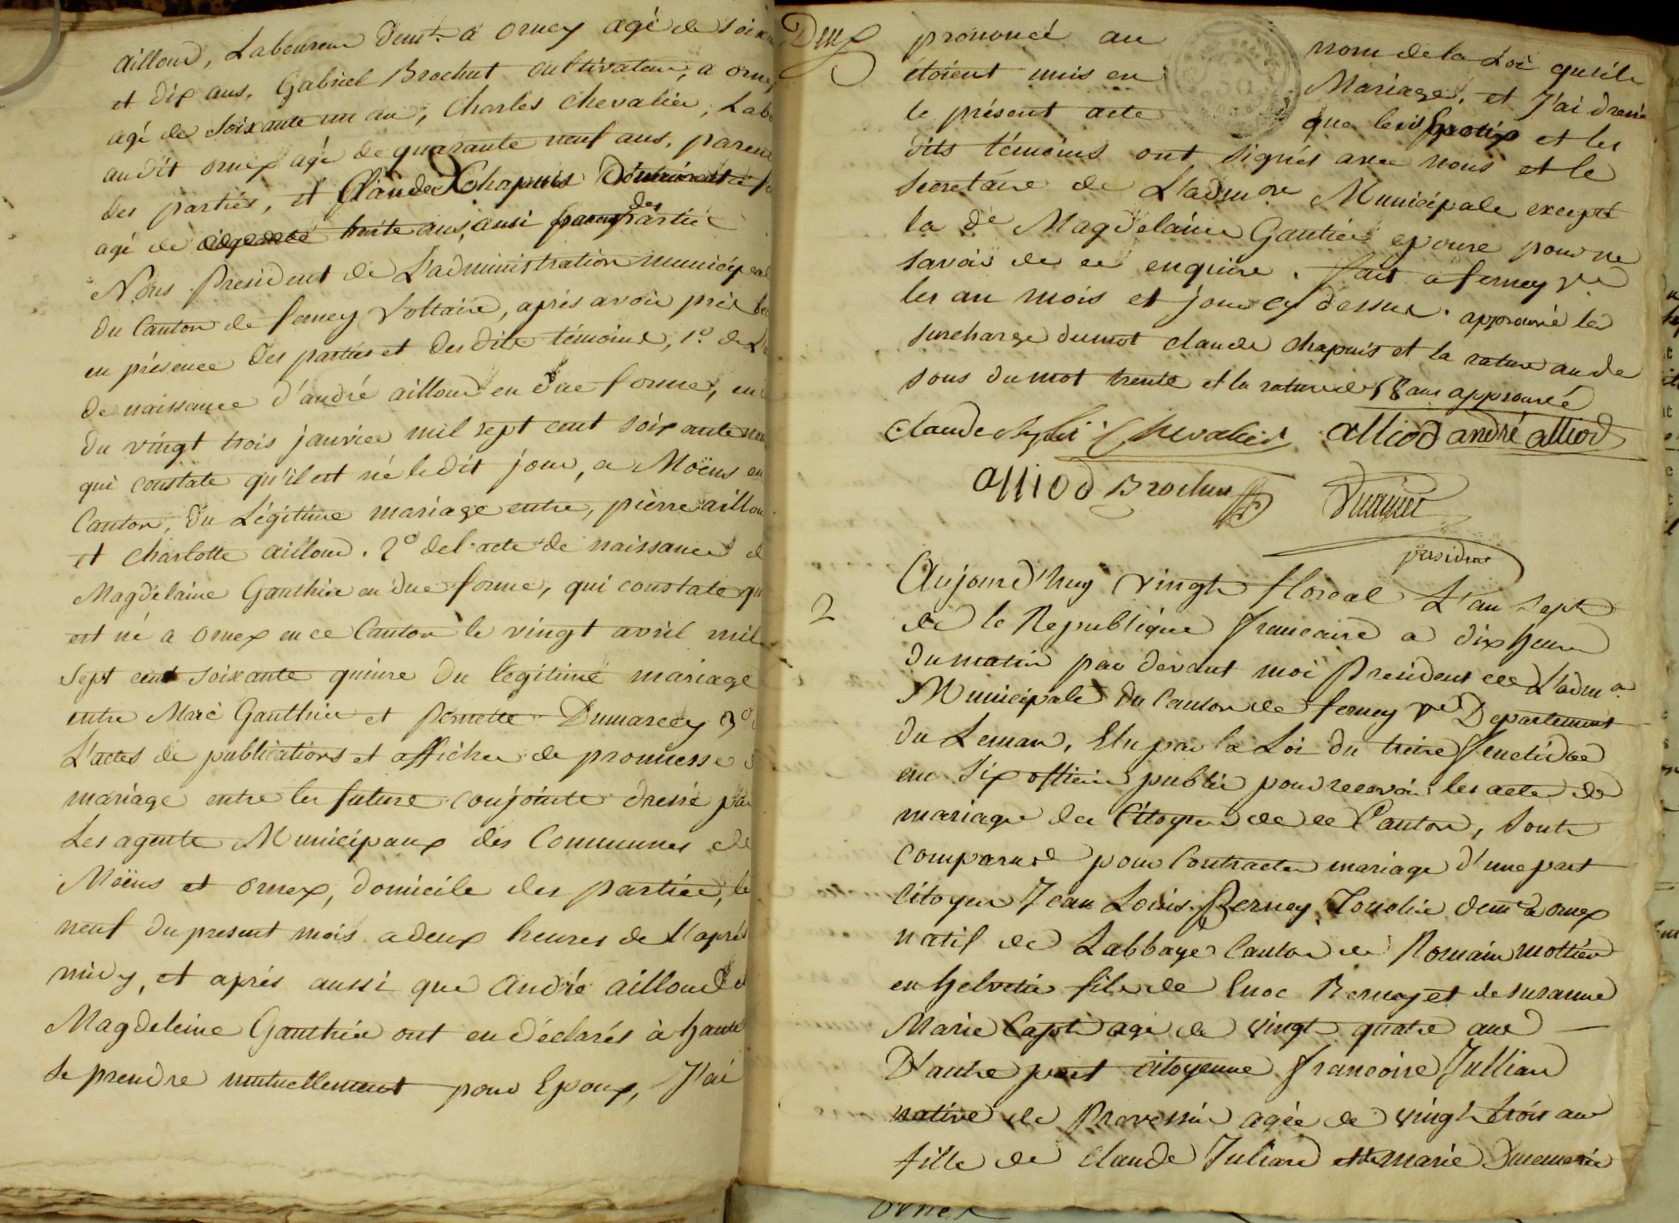 ailloud, Laboureur demt. a ornex agé de soix
et dix ans, Gabriel Brochut cultivateur, a orn
agé de soixante un an, Charles Chevalier, Lab
au dit ornex agé de quarante neuf ans, paren
des parties, et Claude Chapuis
agé de trente ans, aussi parent des partie
Nous President de L'administration municip
du Canton de ferney Voltaire, après avoir
en présence des parties et des dits témoins, 1º. de L
de naissance d'andré ailloud en due forme, en
du vingt trois janvier mil sept cent soixante
qui constate qu'il est né le dit jour, a Moëns en
Canton, du Légitime mariage entre, pierre aillou
et Charlotte ailloud. 2º de l'acte de naissance d
Magdelaine Gauthier en due forme, qui constate qu
est né a ornex en ce Canton le vingt avril mil
sept cent soixante quinze du legitime mariage
entre Marc Gauthier et Pernette Dumarcey 3º
L'actes de publications et affiches de promesse d
mariage entre les futurs conjoints dressé pa
Les agents Municipaux des Communes de
Moëns et ornex, domicile des parties, le
neuf du present mois a deux heures de l'aprés
midy, et aprés aussi que andré ailloud et
Magdeleine Gauthier ont eu déclarés à haute
se prendre mutuellement pour Epoux, J'ai
prononcé au nom de la Loi qu'ils
étoient unis en Mariage, et J'ai dressé
le présent acte que lesd. et les
dits témoins ont signés avec nous et le
Secretaire de L'admon Municipale excepté
la de Magdelaine Gautier epouse pour ne
savoir de ce enquise. fait a ferney Vre
les an mois et jour cy dessus. approuvé la
surcharge du mot claude chapuis et la rature au de
sous du mot trente et la rature de approuvé
Chevalier alliod andré alliod
alliod Brochut
président
2
Aujourd'huy vingt floreal L'an sept
de la Republique francaise a dix heure
du matin par devant moi President de L'admon
Municipale du Canton de ferney Vre Departement
du Leman, Elu par la Loi du treize fructidor
an Six officier public pour recevoir les acte de
mariage des Citoyen de ce Canton, sont
comparus pour Contracter mariage d'une part
Citoyen Jean Louis Berney, demt a ornex
natif de Labbaye Canton de Romainmottier
en helvetie fils de Enoc Berney et de susanne
Marie Capt agé de vingt quatre ans —
D'autre part citoyenne francoise Jullian
native de Prevessin agée de vingt trois ans
fille de Claude Juliard et de marie